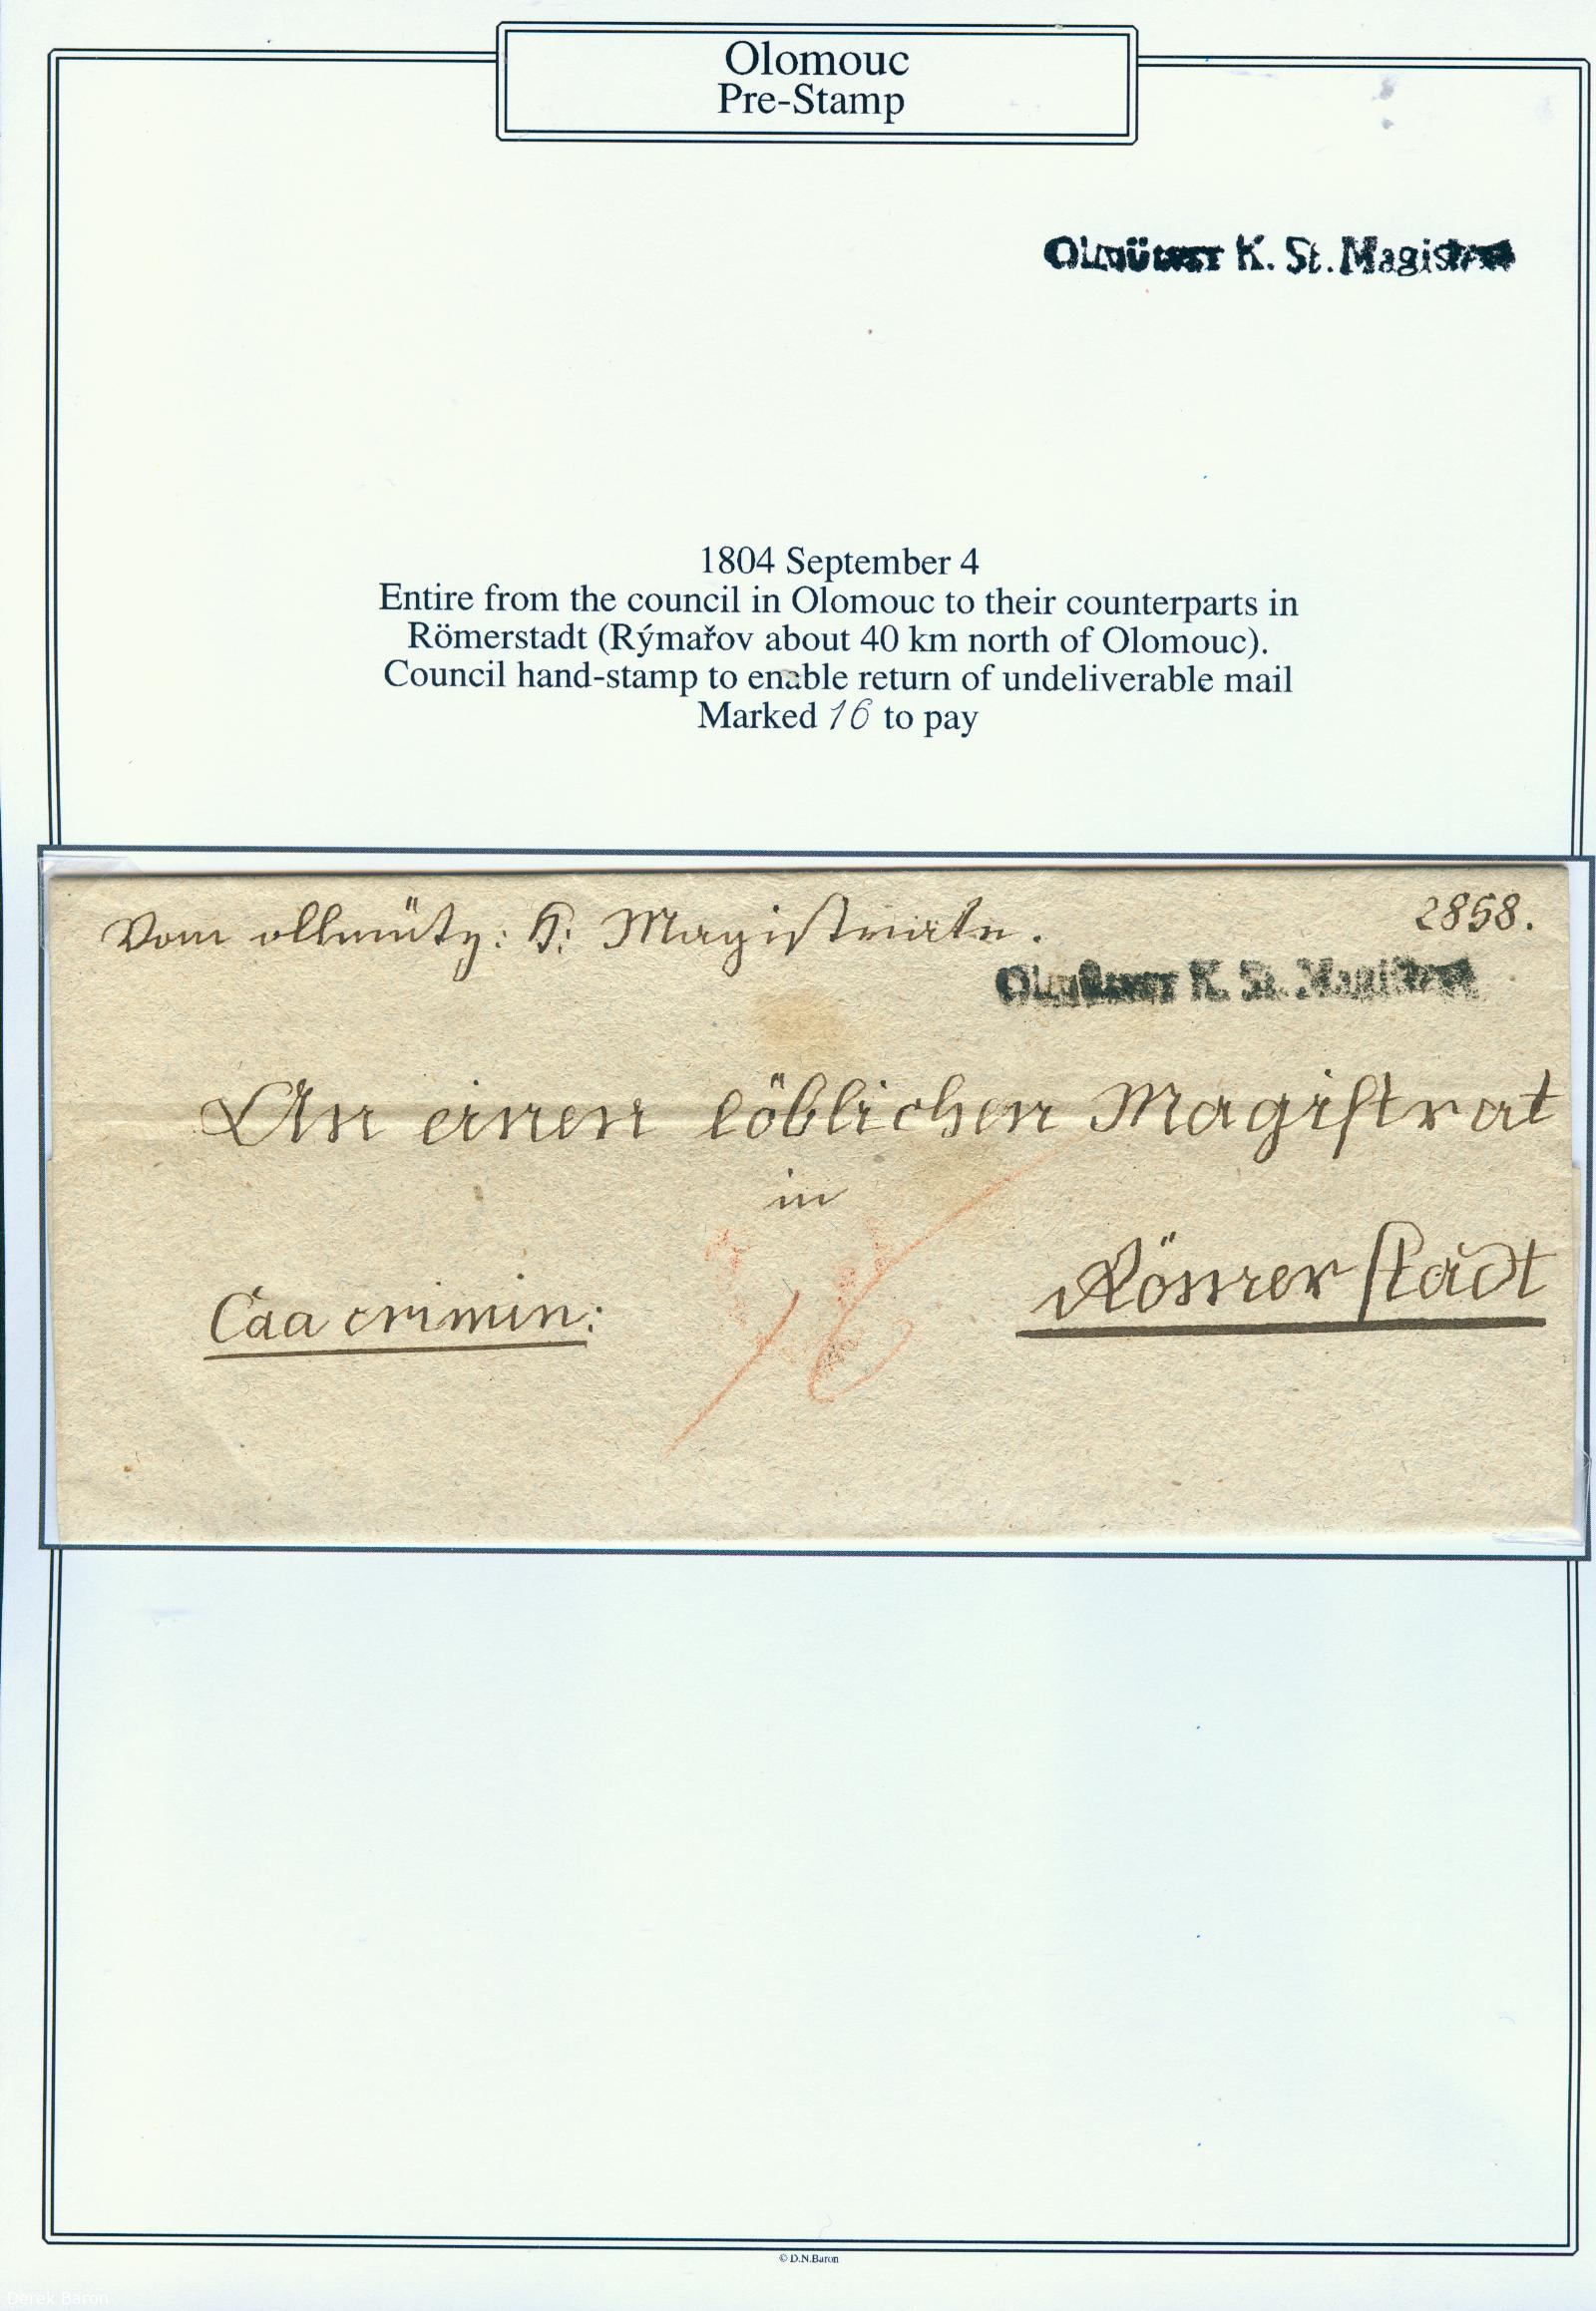 Olomouc
Pre-Stamp
Olmützer K. St. Magistrat
1804 September 4
Entire from the council in Olomouc to their counterparts in
Römerstadt (Rýmařov about 40 km north of Olomouc).
Council hand-stamp to enable return of undeliverable mail
Marked 16 to pay
Vom ollmütz: K: Magistrate.
2858.
Olmützer K. St. Magistrat
An einen löblichen Magistrat
in
Römerstadt
Caa crimin:
16
© D.N.Baron
Derek Baron